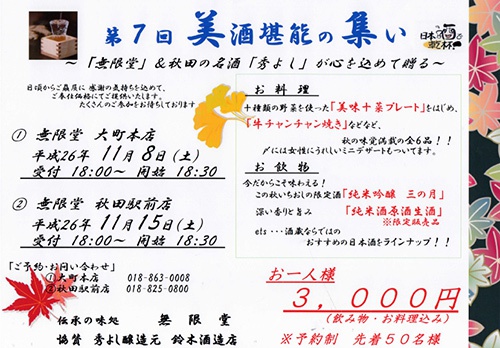 第7回 美酒堪能の集い
日本酒で乾杯
～「無限堂」&秋田の名酒「秀よし」が心を込めて贈る～
日頃からご贔屓に感謝の気持ちを込めて、
ご奉仕価格にてご提供いたします。
たくさんのご参加をお待ちしております
① 無限堂 大町本店
平成26年 11月8日(土)
受付 18:00～ 開始 18:30
② 無限堂 秋田駅前店
平成26年 11月15日(土)
受付 18:00～ 開始 18:30
「ご予約・お問い合わせ」
①大町本店 018-863-0008
②秋田駅前店 018-825-0800
伝承の味処 無限堂
協賛 秀よし醸造元 鈴木酒造店
お料理
十種類の野菜を使った「美味十菜プレート」をはじめ、
「牛チャンチャン焼き」などなど、
秋の味覚満載の全6品!!
〆には女性にうれしいミニデザートもついてます。
お飲物
今だからこそ味わえる!
この秋いちおしの限定酒「純米吟醸 三の月」
深い香りと旨み「純米酒原酒生酒」
※限定販売品
ets…酒蔵ならではの
おすすめの日本酒をラインナップ!!
お一人様
3,000円
(飲み物・お料理込み)
※予約制 先着50名様